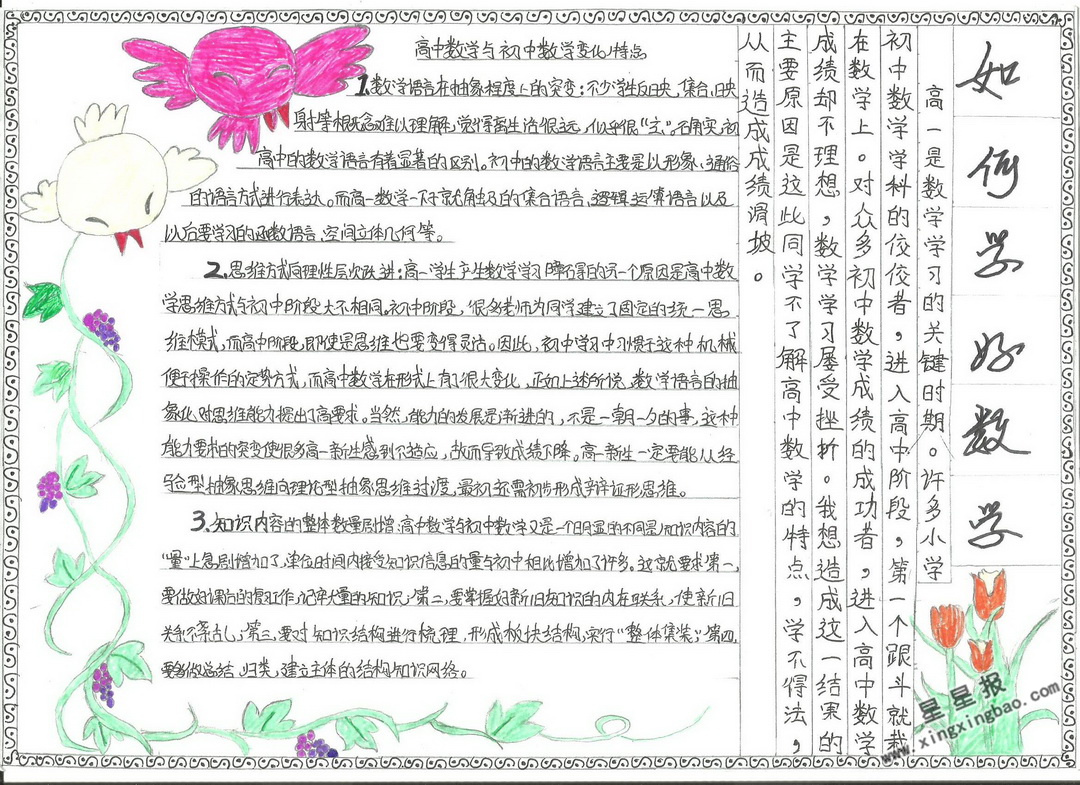 如何学好数学
高一是数学学习的关键时期。许多小学
初中数学学科的佼佼者，进入高中阶段，第一个跟斗就栽
在数学上。对众多初中数学成绩的成功者，进入高中数学
成绩却不理想，数学学习屡受挫折。我想造成这一结果的
主要原因是这此同学不了解高中数学的特点，学不得法，
从而造成成绩滑坡。
高中数学与初中数学变化特点
1.数学语言在抽象程度上的突变：不少学生反映，集合、映
射等概念难以理解，觉得离生活很远，似乎很“玄”。确实，初
高中的数学语言有着显著的区别。初中的数学语言主要是以形象、通俗
的语言方式进行表达。而高一数学一下子就触及的集合语言，逻辑运算语言以及
以后要学习的函数语言，空间立体几何等。
2.思维方式向理性层次跃进：高一学生产生数学学习障碍的另一个原因是高中数
学思维方式与初中阶段大不相同。初中阶段，很多老师为同学建立了固定的统一思
维模式，而高中阶段，即使是思维也要变得灵活。因此，初中学习中习惯于这种机械
便于操作的定势方式，而高中数学在形式上有了很大变化，正如上述所说，数学语言的抽
象化对思维能力提出了高要求。当然，能力的发展是渐进的，不是一朝一夕的事，这种
能力要求的突变使很多高一新生感到不适应，故而导致成绩下降。高一新生一定要能从经
验型抽象思维向理论型抽象思维过渡，最初还需初步形成辩证形思维。
3.知识内容的整体数量剧增：高中数学与初中数学又是一个明显的不同是知识内容的
“量”上急剧增加了，单位时间内接受知识信息的量与初中相比增加了许多。这就要求第一，
要做好课后的复工作，记牢大量的知识；第二，要掌握好新旧知识的内在联系，使新旧
关系不紊乱；第三，要对知识结构进行梳理，形成板块结构，实行“整体集装”；第四，
要多做总结、归类，建立主体的结构知识网络。
星星报
www.xingxingbao.com